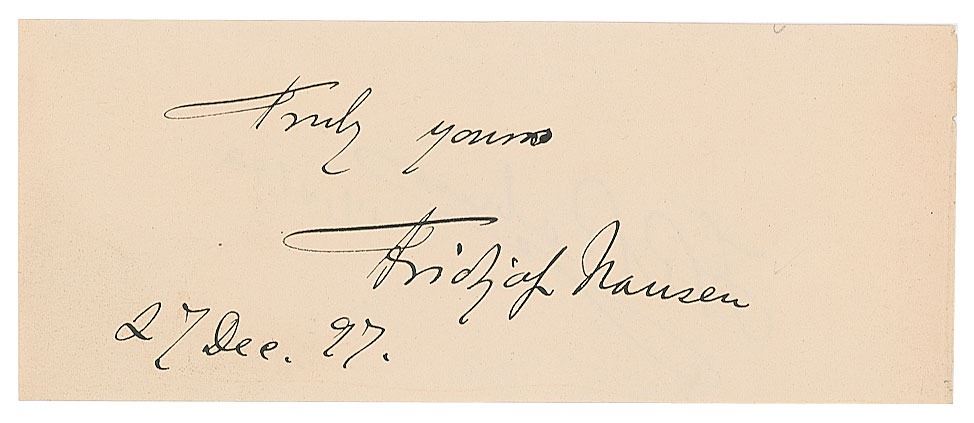 Truly yours
Fridtjof Nansen
27 Dec. 97.